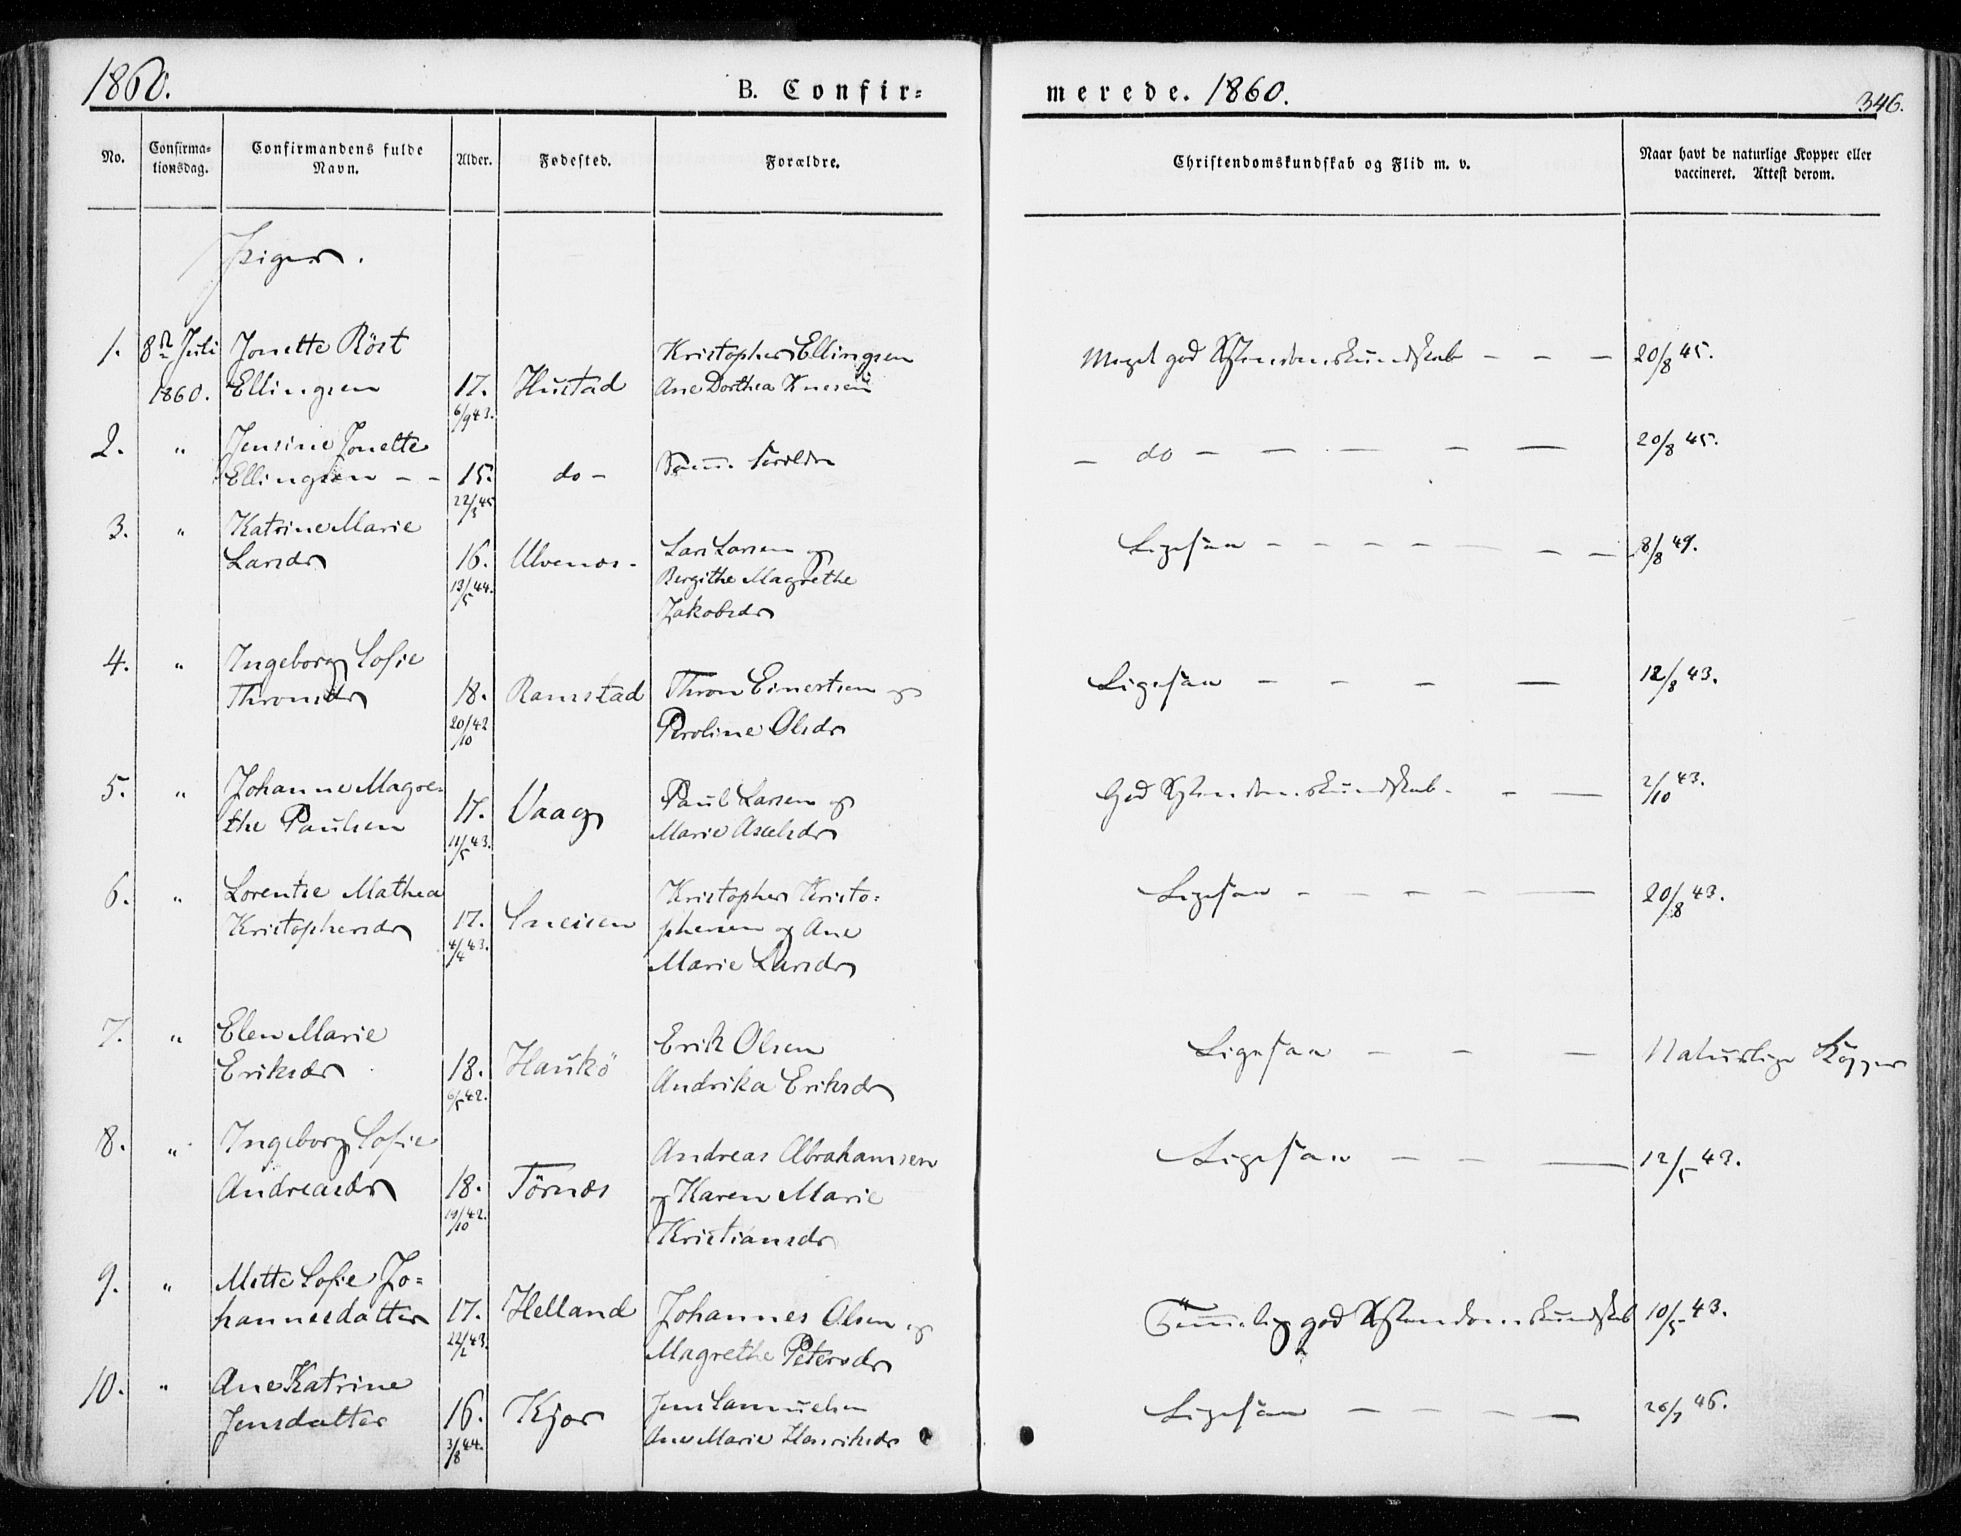 1860. B. Confir= merede. 1860. 346.
No. Confirma=tionsdag. Confirmandens fulde Navn. Alder. Fødested. Forældre. Christendomskundskab og Flid m. v. Naar havt de naturlige Kopper eller vaccineret. Attest derom.
Piger.
1. 8de Juli Jonette Röst Kristopher Ellingsen Meget god Xstendomskundskab - - - 20/8 45.
1860. Ellingsen 17. Hustad Ane Dorthea
6/9 43.
2. " Jensine Jonette Samme Foreldre - do - - - - - 20/8 45.
Ellingsen - - 15. do -
22/5 45
3. " Katrine Marie Lars Larsen og Ligesaa - - - - - - - 8/8 49.
Larsdr 16. Ulvenæs - Bergithe Magrethe
13/5 44. Jakobsdr
4. " Ingeborg Sofie Thron Einertsen og Ligesaa - - - - 12/8 43.
Thronsdr 18. Ramstad Peroline Olsdr
20/10 42
5. " Johanne Magre= Paul Larsen og God Xstendomskundskab - - - 2/10 43.
the Paulsen 17. Vaag Marie Axelsdr
11/5 43.
6. " Lorentse Mathea Kristopher Kristo= Ligesaa - - - - - - 20/8 43.
Kristophersdr 17. Sneisen phersen og Ane
4/4 43. Marie Larsdr
7. " Elen Marie Erik Olsen Ligesaa - - - Naturlige Kopper
Eriksdr 18. Haukö Andrika Eriksdr
6/5 42.
8. " Ingeborg Sofie Andreas Abrahamsen Ligesaa - - - 12/5 43.
Andreasdr 18. Törnæs og Karen Marie
19/10 42. Kristiansdr
9. " Mette Sofie Jo= Johannes Olsen og Temmelig god Xstendomskundskab 10/5 43.
hannesdatter 17. Helland Magrethe Petersdr
22/2 43.
10. " Ane Katrine Jens Samuelsen Ligesaa - - - - 26/7 46.
Jensdatter 16. Kjær Ane Marie Henriksdr
3/8 44.